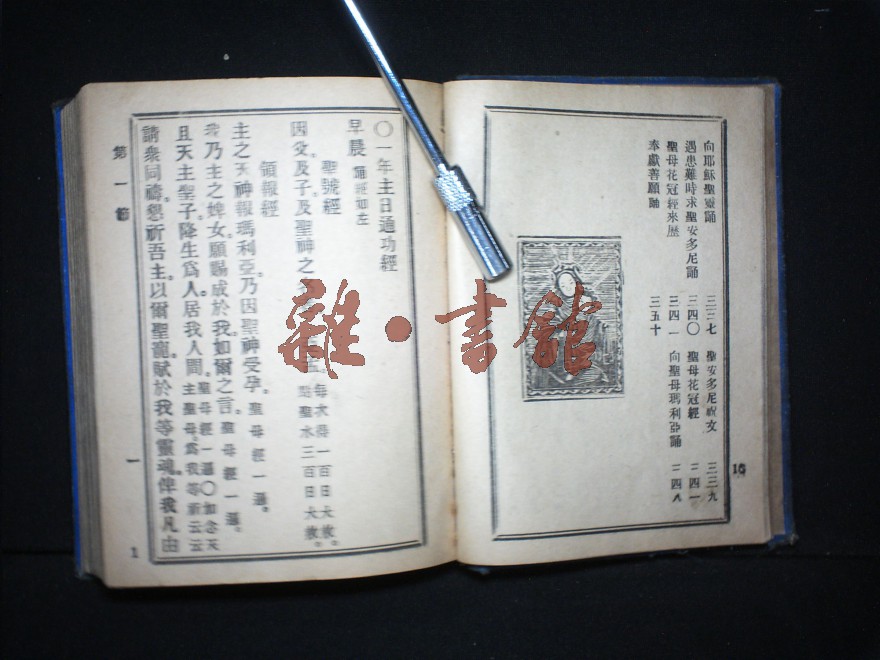 向耶穌聖靈誦 三三七 聖安多尼祝文 三三九
遇患難時求聖安多尼誦 三四〇 聖母花冠經 二四一
聖母花冠經來歷 二四一 向聖母瑪利亞誦 二四八
奉獻善願誦 三五十
16
〇一年主日通功經
早晨 誦經如左
聖號經
因父及子及聖神之名 每次得一百日大赦。點聖水三百日大赦。
領報經
主之天神報瑪利亞。乃因聖神受孕。聖母經一遍。
我乃主之婢女。願賜成於我。如爾之言。聖母經一遍。
且天主聖子。降生爲人。居我人間。聖母經一遍。〇如念天主聖母。爲我等祈云云
請衆同禱。懇祈吾主。以爾聖寵。賦於我等靈魂。俾我凡由
第一節
一
1
雜·書館